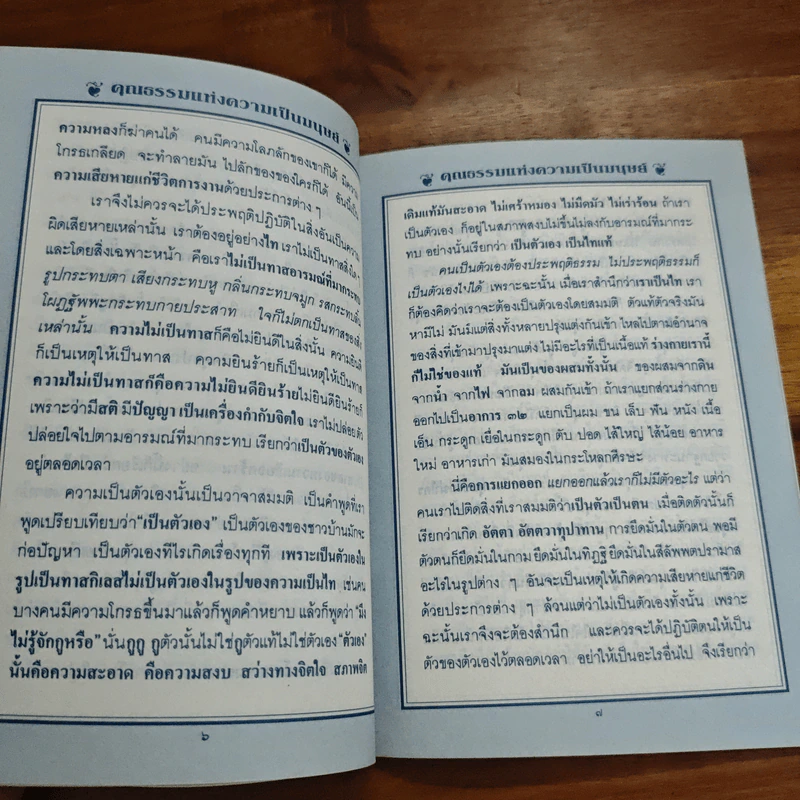 คุณธรรมแห่งความเป็นมนุษย์
ความหลงก็ฆ่าคนได้ คนมีความโลภลักของเขาก็ได้ มีความ
โกรธเกลียด จะทำลายมัน ไปลักของของใครก็ได้ อันนี้เป็น
ความเสียหายแก่ชีวิตการงานด้วยประการต่าง ๆ
เราจึงไม่ควรจะได้ประพฤติปฏิบัติในสิ่งอันเป็นความ
ผิดเสียหายเหล่านั้น เราต้องอยู่อย่างไท เราไม่เป็นทาสสิ่งใด
และโดยสิ่งเฉพาะหน้า คือเราไม่เป็นทาสอารมณ์ที่มากระทบ
รูปกระทบตา เสียงกระทบหู กลิ่นกระทบจมูก รสกระทบลิ้น
โผฏฐัพพะกระทบกายประสาท ใจก็ไม่ตกเป็นทาสของสิ่ง
เหล่านั้น ความไม่เป็นทาสก็คือไม่ยินดีในสิ่งนั้น ความยินดี
ก็เป็นเหตุให้เป็นทาส ความยินร้ายก็เป็นเหตุให้เป็นทาส
ความไม่เป็นทาสก็คือความไม่ยินดียินร้าย ไม่ยินดียินร้ายก็
เพราะว่ามีสติ มีปัญญา เป็นเครื่องกำกับจิตใจ เราไม่ปล่อยตัว
ปล่อยใจไปตามอารมณ์ที่มากระทบ เรียกว่าเป็นตัวของตัวเอง
อยู่ตลอดเวลา
ความเป็นตัวเองนั้นเป็นวาจาสมมติ เป็นคำพูดที่เรา
พูดเปรียบเทียบว่า"เป็นตัวเอง" เป็นตัวเองของชาวบ้านมักจะ
ก่อปัญหา เป็นตัวเองทีไรเกิดเรื่องทุกที เพราะเป็นตัวเองใน
รูปเป็นทาสกิเลสไม่เป็นตัวเองในรูปของความเป็นไท เช่นคน
บางคนมีความโกรธขึ้นมาแล้วก็พูดคำหยาบ แล้วก็พูดว่า "มึง
ไม่รู้จักกูหรือ" นั่นกูกู กูตัวนั้นไม่ใช่กูตัวแท้ไม่ใช่ตัวเอง "ตัวเอง"
นั้นคือความสะอาด คือความสงบ สว่างทางจิตใจ สภาพจิต
๖
คุณธรรมแห่งความเป็นมนุษย์
เดิมแท้มันสะอาด ไม่เศร้าหมอง ไม่มืดมัว ไม่เร่าร้อน ถ้าเรา
เป็นตัวเอง ก็อยู่ในสภาพสงบไม่ขึ้นไม่ลงกับอารมณ์ที่มากระ
ทบ อย่างนั้นเรียกว่า เป็นตัวเอง เป็นไทแท้
คนเป็นตัวเองต้องประพฤติธรรม ไม่ประพฤติธรรมก็
เป็นตัวเองไปไม่ได้ เพราะฉะนั้น เมื่อเราสำนึกว่าเราเป็นไท เรา
ก็ต้องคิดว่าเราจะต้องเป็นตัวเองโดยสมมติ ตัวแท้ตัวจริงมัน
หามีไม่ มันมีแต่สิ่งทั้งหลายปรุงแต่งกันเข้า ไหลไปตามอำนาจ
ของสิ่งที่เข้ามาปรุงมาแต่ง ไม่มีอะไรที่เป็นเนื้อแท้ ร่างกายเรานี้
ก็ไม่ใช่ของแท้ มันเป็นของผสมทั้งนั้น ของผสมจากดิน
จากน้ำ จากไฟ จากลม ผสมกันเข้า ถ้าเราแยกส่วนร่างกาย
ออกไปเป็นอาการ ๓๒ แยกเป็นผม ขน เล็บ ฟัน หนัง เนื้อ
เอ็น กระดูก เยื่อในกระดูก ตับ ปอด ไส้ใหญ่ ไส้น้อย อาหาร
ใหม่ อาหารเก่า มันสมองในกระโหลกศีรษะ
นี่คือการแยกออก แยกออกแล้วเราก็ไม่มีตัวอะไร แต่ว่า
คนเราไปติดสิ่งที่เราสมมติว่าเป็นตัวเป็นตน เมื่อติดตัวนั้นก็
เรียกว่าเกิด อัตตา อัตตวาทุปาทาน การยึดมั่นในตัวตน พอมี
ตัวตนก็ยึดมั่นในกาม ยึดมั่นในทิฏฐิ ยึดมั่นในสีลัพพตปรามาส
อะไรในรูปต่าง ๆ อันจะเป็นเหตุให้เกิดความเสียหายแก่ชีวิต
ด้วยประการต่าง ๆ ล้วนแต่ว่าไม่เป็นตัวเองทั้งนั้น เพราะ
ฉะนั้นเราจึงจะต้องสำนึก และควรจะได้ปฏิบัติตนให้เป็น
ตัวของตัวเองไว้ตลอดเวลา อย่าให้เป็นอะไรอื่นไป จึงเรียกว่า
๗